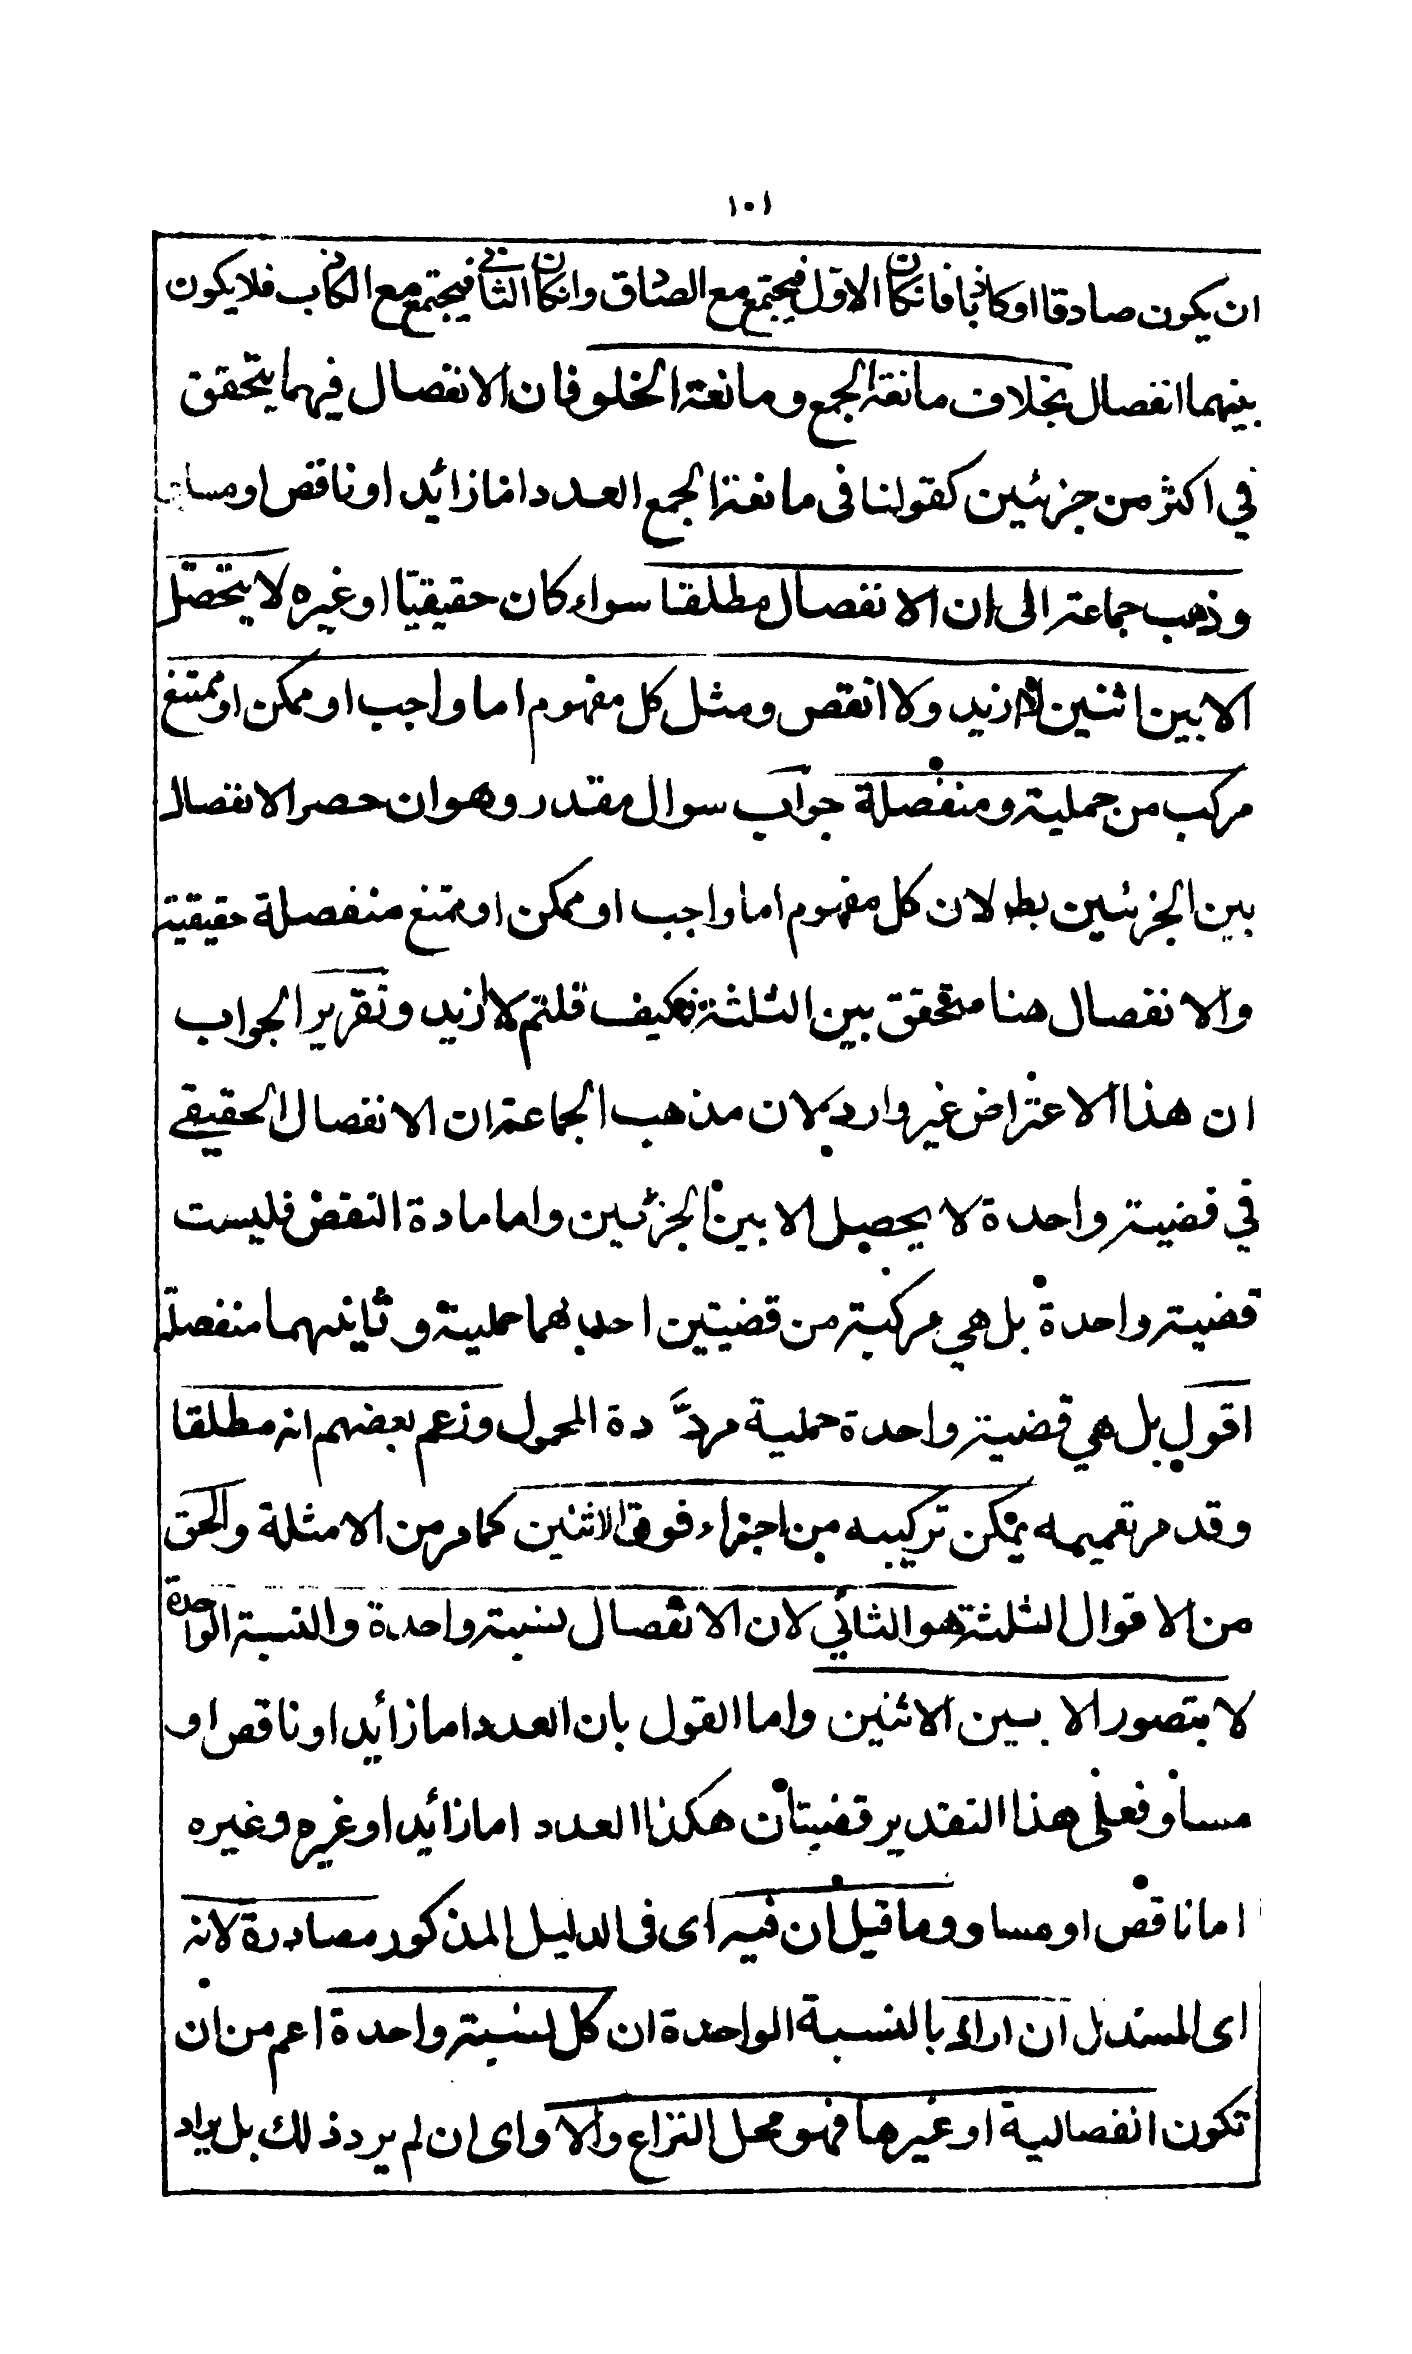 ١٠١
ان يكون صادقا او كاذبا فانكان الاوّل فيجتمع مع الصادق وانكان الثانى فيجتمع مع الكاذب فلا يكون
بينهما انفصال بخلاف مانعة الجمع ومانعة الخلو فان الانفصال فيهما يتحقق
في اكثر من جزئين كقولنا فى مانعة الجمع العدد اما زائد او ناقص او مساو
وذهب جماعة الى ان الانفصال مطلقا سواء كان حقيقيّا او غيره لا يتحصّل
الا بين اثنين لا ازيد ولا انقص ومثل كل مفهوم اما واجب او ممكن او ممتنع
مركب من حملية ومنفصلة جواب سوال مقدر وهو ان حصر الانفصال
بين الجزئين بط لان كل مفهوم اما واجب او ممكن او ممتنع منفصلة حقيقية
والانفصال هنا متحقق بين الثلثة فكيف قلتم لا ازيد وتقرير الجواب
ان هذا الاعتراض غير وارد لان مذهب الجماعة ان الانفصال الحقيقي
في قضية واحدة لا يحصل الا بين الجزئين واما مادة النقض فليست
قضية واحدة بل هي مركبة من قضيتين احدهما حملية وثانيهما منفصلة
اقول بل هي قضية واحدة حملية مردّدة المحمول وزعم بعضهم انه مطلقا
وقد مر تعميمه يمكن تركيبه من اجزاء فوق الاثنين كما مر من الامثلة والحق
من الاقوال الثلثة هو الثاني لان الانفصال نسبة واحدة والنسبة الواحدة
لا يتصور الا بين الاثنين واما القول بان العدد اما زائد او ناقص او
مساو فعلى هذا التقدير قضيتان هكذا العدد اما زائد او غيره وغيره
اما ناقص او مساو وما قيل ان فيه اى فى الدليل المذكور مصادرة لانه
اى المستدل ان اراد بالنسبة الواحدة ان كل نسبة واحدة اعم من ان
تكون انفصالية او غيرها فهو محل النزاع والا واى ان لم يرد ذلك بل يراد